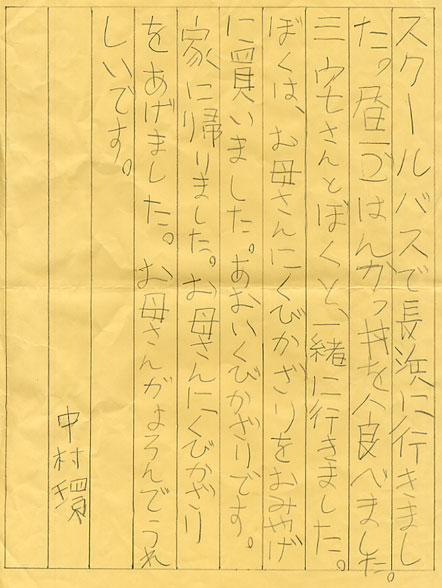 スクールバスで長浜に行きまし
た。昼ごはんかつ丼を食べました。
三宅さんとぼくと、一緒に行きました。
ぼくは、お母さんにくびかざりをおみやげ
に買いました。あおいくびかざりです。
家に帰りました。お母さんにくびかざり
をあげました。お母さんがよろんでうれ
しいです。
中村環